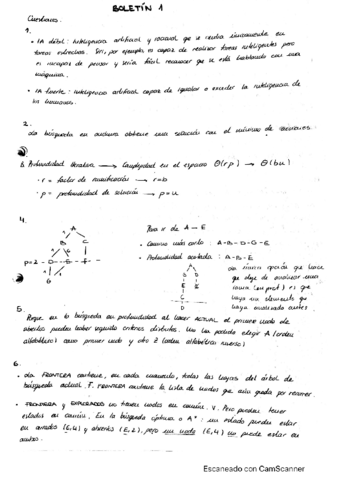 BOLETÍN 1
Cuestiones
1.
• IA débil: inteligencia artificial y racional que se centra únicamente en
tareas estrechas. Siri, por ejemplo es capaz de realizar tareas inteligentes pero
es incapaz de pensar y sería fácil reconocer que se está hablando con una
máquina.
• IA fuerte: inteligencia artificial capaz de igualar o exceder la inteligencia de
los humanos.
2.
La búsqueda en anchura obtiene una solución con el mínimo de
3. Profundidad iterativa → Complejidad en el espacio Θ(rp) → Θ(bu)
• r = factor de ramificación → r=b
• p = profundidad de solución → p=u
4.
A
B C
p=2 - D - E - F -
G
E
Para ir de A → E
• Camino más corto: A-B-D-G-E
• Profundidad acotada: A-B-E
A
B D
E E
D
La única opción que hace
que deje de
rama es que
haya un elemento que
haya analizado antes.
5.
Porque en la búsqueda en profundidad al hacer ACTUAL el primer nodo de
abiertos pueden haber seguido criterios distintos. Uno ha podido elegir A (orden
alfabético) como primer nodo y otro Z (orden alfabético inverso)
6.
• La FRONTERA contiene, en cada momento, todas las hojas del árbol de
búsqueda actual. F. FRONTERA contiene la lista de nodos que aún queda por recorrer.
• FRONTERA y EXPLORADOS no tienen nodos en común. V. Pero pueden tener
estados en común. En la búsqueda óptima o A*: un estado puede estar
en cerrados (E,4) y abiertos (E,2), pero un nodo (E,4) no puede estar en
ambos.
Escaneado con CamScanner